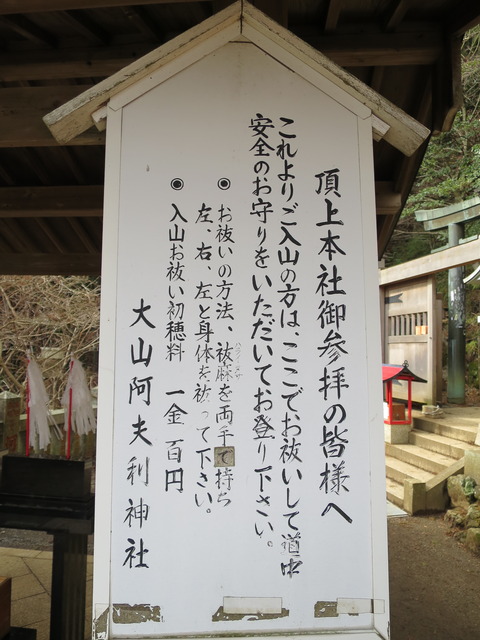 頂上本社御参拝の皆様へ
これよりご入山の方は、ここでお祓いして道中
安全のお守りをいただいてお登り下さい。
◉ お祓いの方法、祓麻を両手で持ち
左、右、左と身体を祓って下さい。
◉ 入山お祓い初穂料 一金 百円
大山阿夫利神社